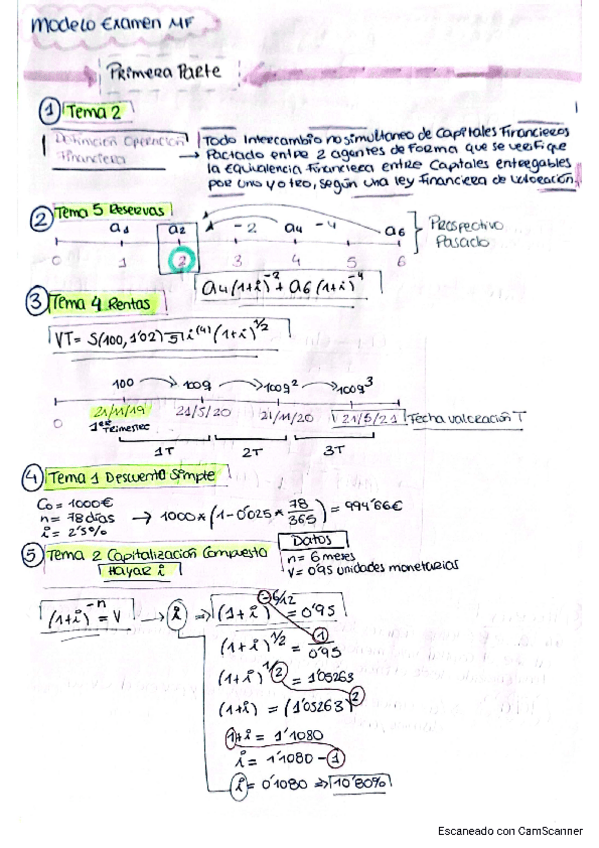 Modelo Examen MF
Primera Parte
① Tema 2
Definición Operación Financiera → Todo intercambio no simultaneo de Capitales Financieros
Pactado entre 2 agentes de forma que se verifique
la Equivalencia Financiera entre Capitales entregables
por uno y otro, según una ley financiera de valoración.
② Tema 5 Reservas
a1 a2 -2 a4 -4 a6
0 1 2 3 4 5 6
Prospectivo
Pasado
a4(1+i)^-2 + a6(1+i)^-4
③ Tema 4 Rentas
VT= S(100, 1'02) 5 i^(4) (1+i)^1/2
100 100q 100q^2 100q^3
0 21/11/19 21/5/20 21/11/20 21/5/21 Fecha valoración T
1er Trimestre
1T 2T 3T
④ Tema 1 Descuento Simple
C0 = 1000€
n = 78 días → 1000 * (1-0'025 * 78/365) = 994'66€
i = 2'5%
⑤ Tema 2 Capitalización Compuesta
Hayar i
Datos
n = 6 meses
V = 0'95 unidades monetarias
(1+i)^-n = V → i ⇒ (1+i)^-6/12 = 0'95
(1+i)^1/2 = 1/0'95
(1+i)^1/2 = 1'05263
(1+i) = (1'05263)^2
1+i = 1'1080
i = 1'1080 - 1
i = 0'1080 ⇒ 10'80%
Escaneado con CamScanner